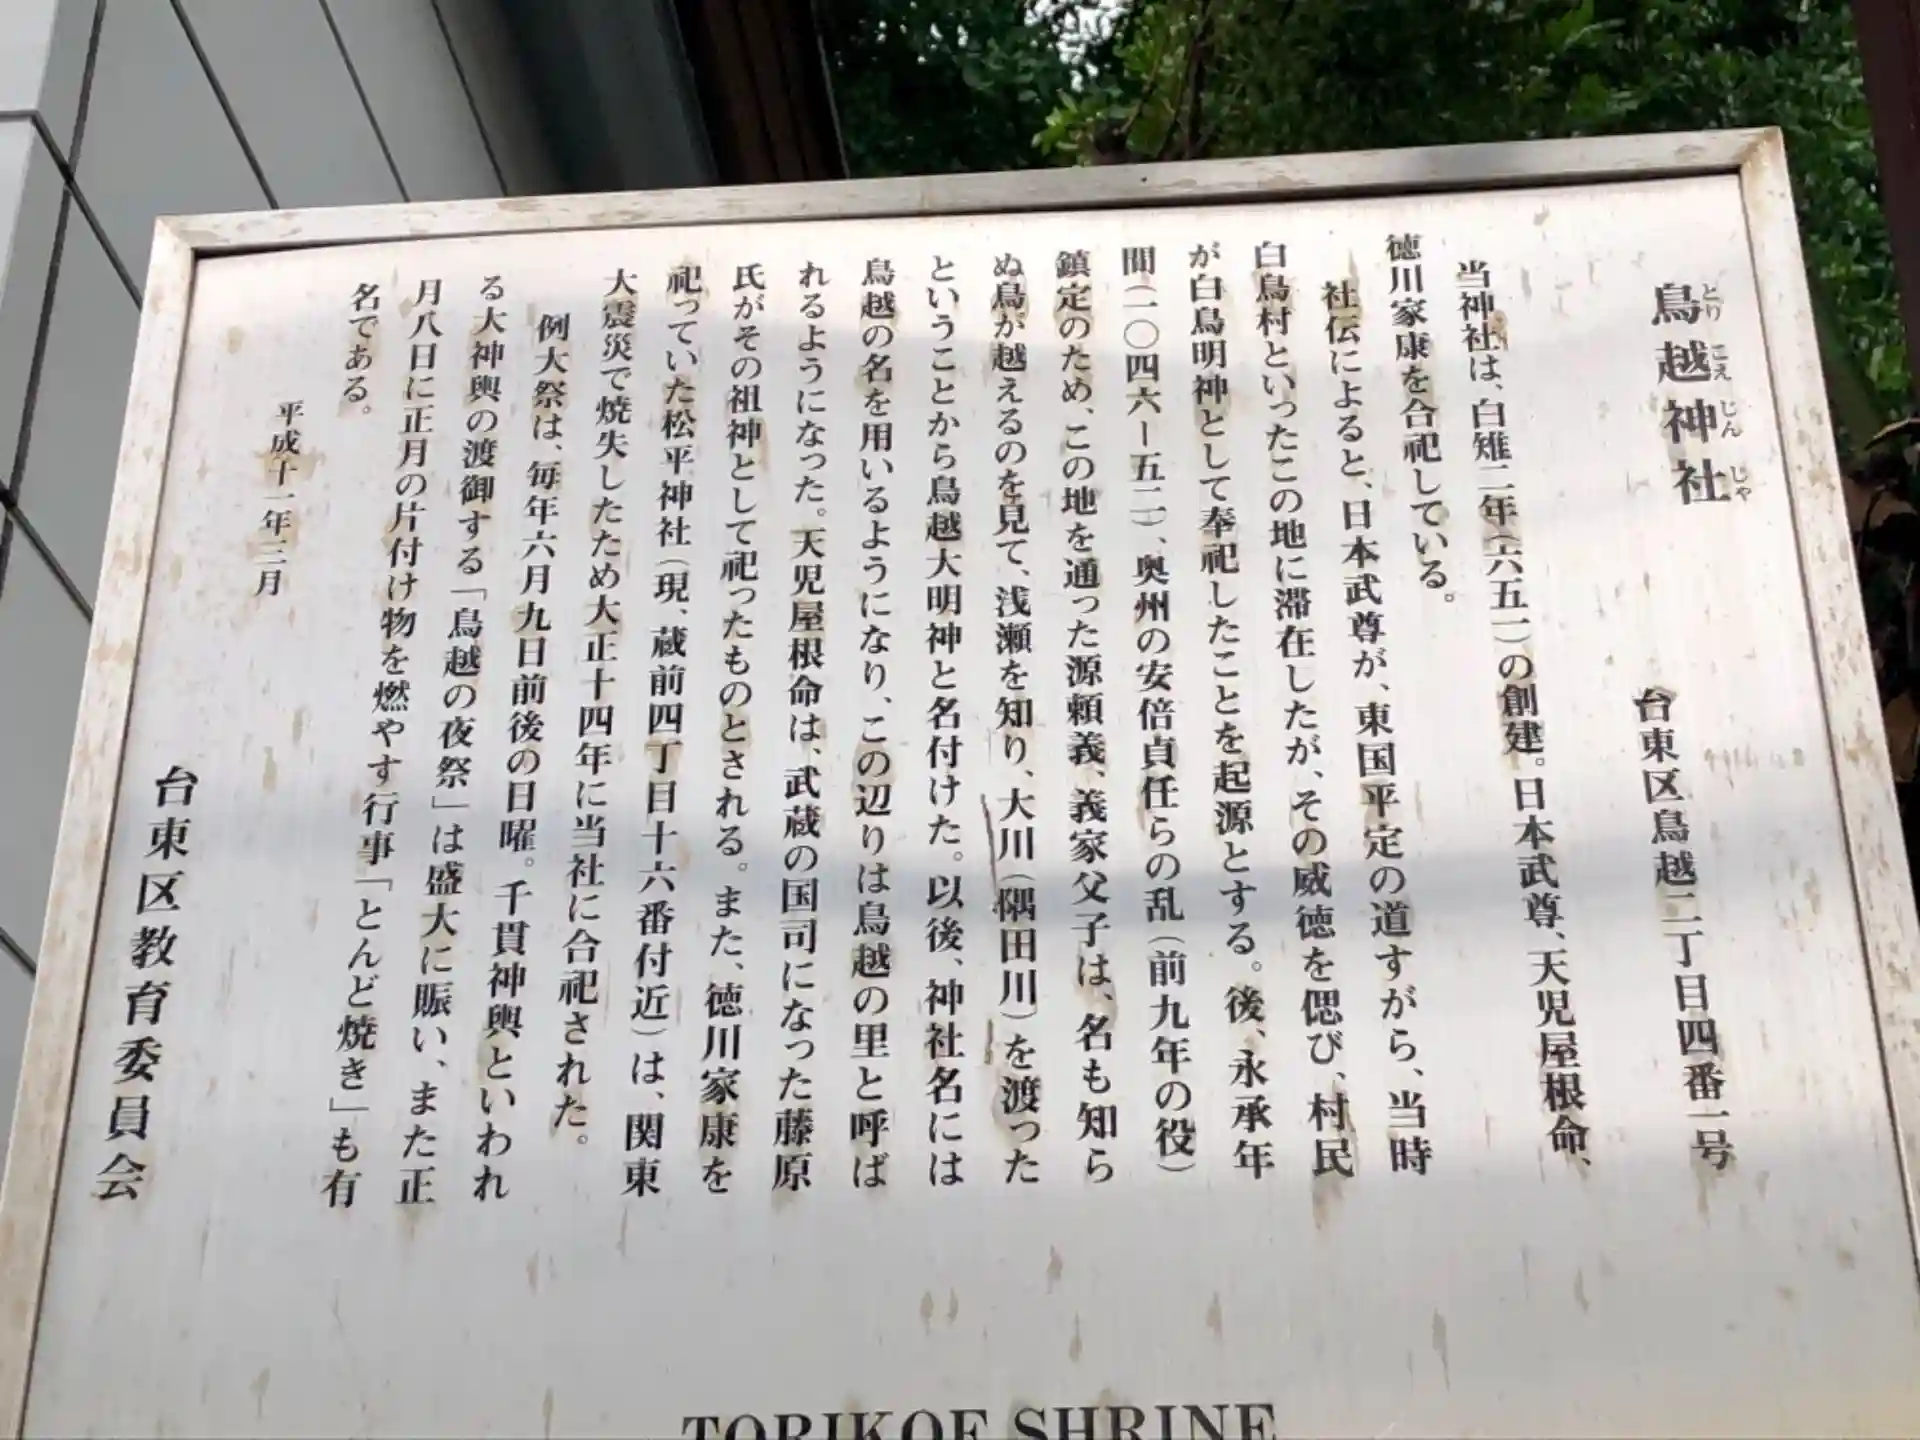 鳥越神社
とり こえ じん じゃ
台東区鳥越二丁目四番一号
当神社は、白雉二年（六五一）の創建。日本武尊、天児屋根命、
徳川家康を合祀している。
社伝によると、日本武尊が、東国平定の道すがら、当時
白鳥村といったこの地に滞在したが、その威徳を偲び、村民
が白鳥明神として奉祀したことを起源とする。後、永承年
間（一〇四六－五二）、奥州の安倍貞任らの乱（前九年の役）
鎮定のため、この地を通った源頼義、義家父子は、名も知ら
ぬ鳥が越えるのを見て、浅瀬を知り、大川（隅田川）を渡った
ということから鳥越大明神と名付けた。以後、神社名には
鳥越の名を用いるようになり、この辺りは鳥越の里と呼ば
れるようになった。天児屋根命は、武蔵の国司になった藤原
氏がその祖神として祀ったものとされる。また、徳川家康を
祀っていた松平神社（現、蔵前四丁目十六番付近）は、関東
大震災で焼失したため大正十四年に当社に合祀された。
例大祭は、毎年六月九日前後の日曜。千貫神輿といわれ
る大神輿の渡御する「鳥越の夜祭」は盛大に賑い、また正
月八日に正月の片付け物を燃やす行事「とんど焼き」も有
名である。
平成十一年三月
台東区教育委員会
TORIKOE SHRINE